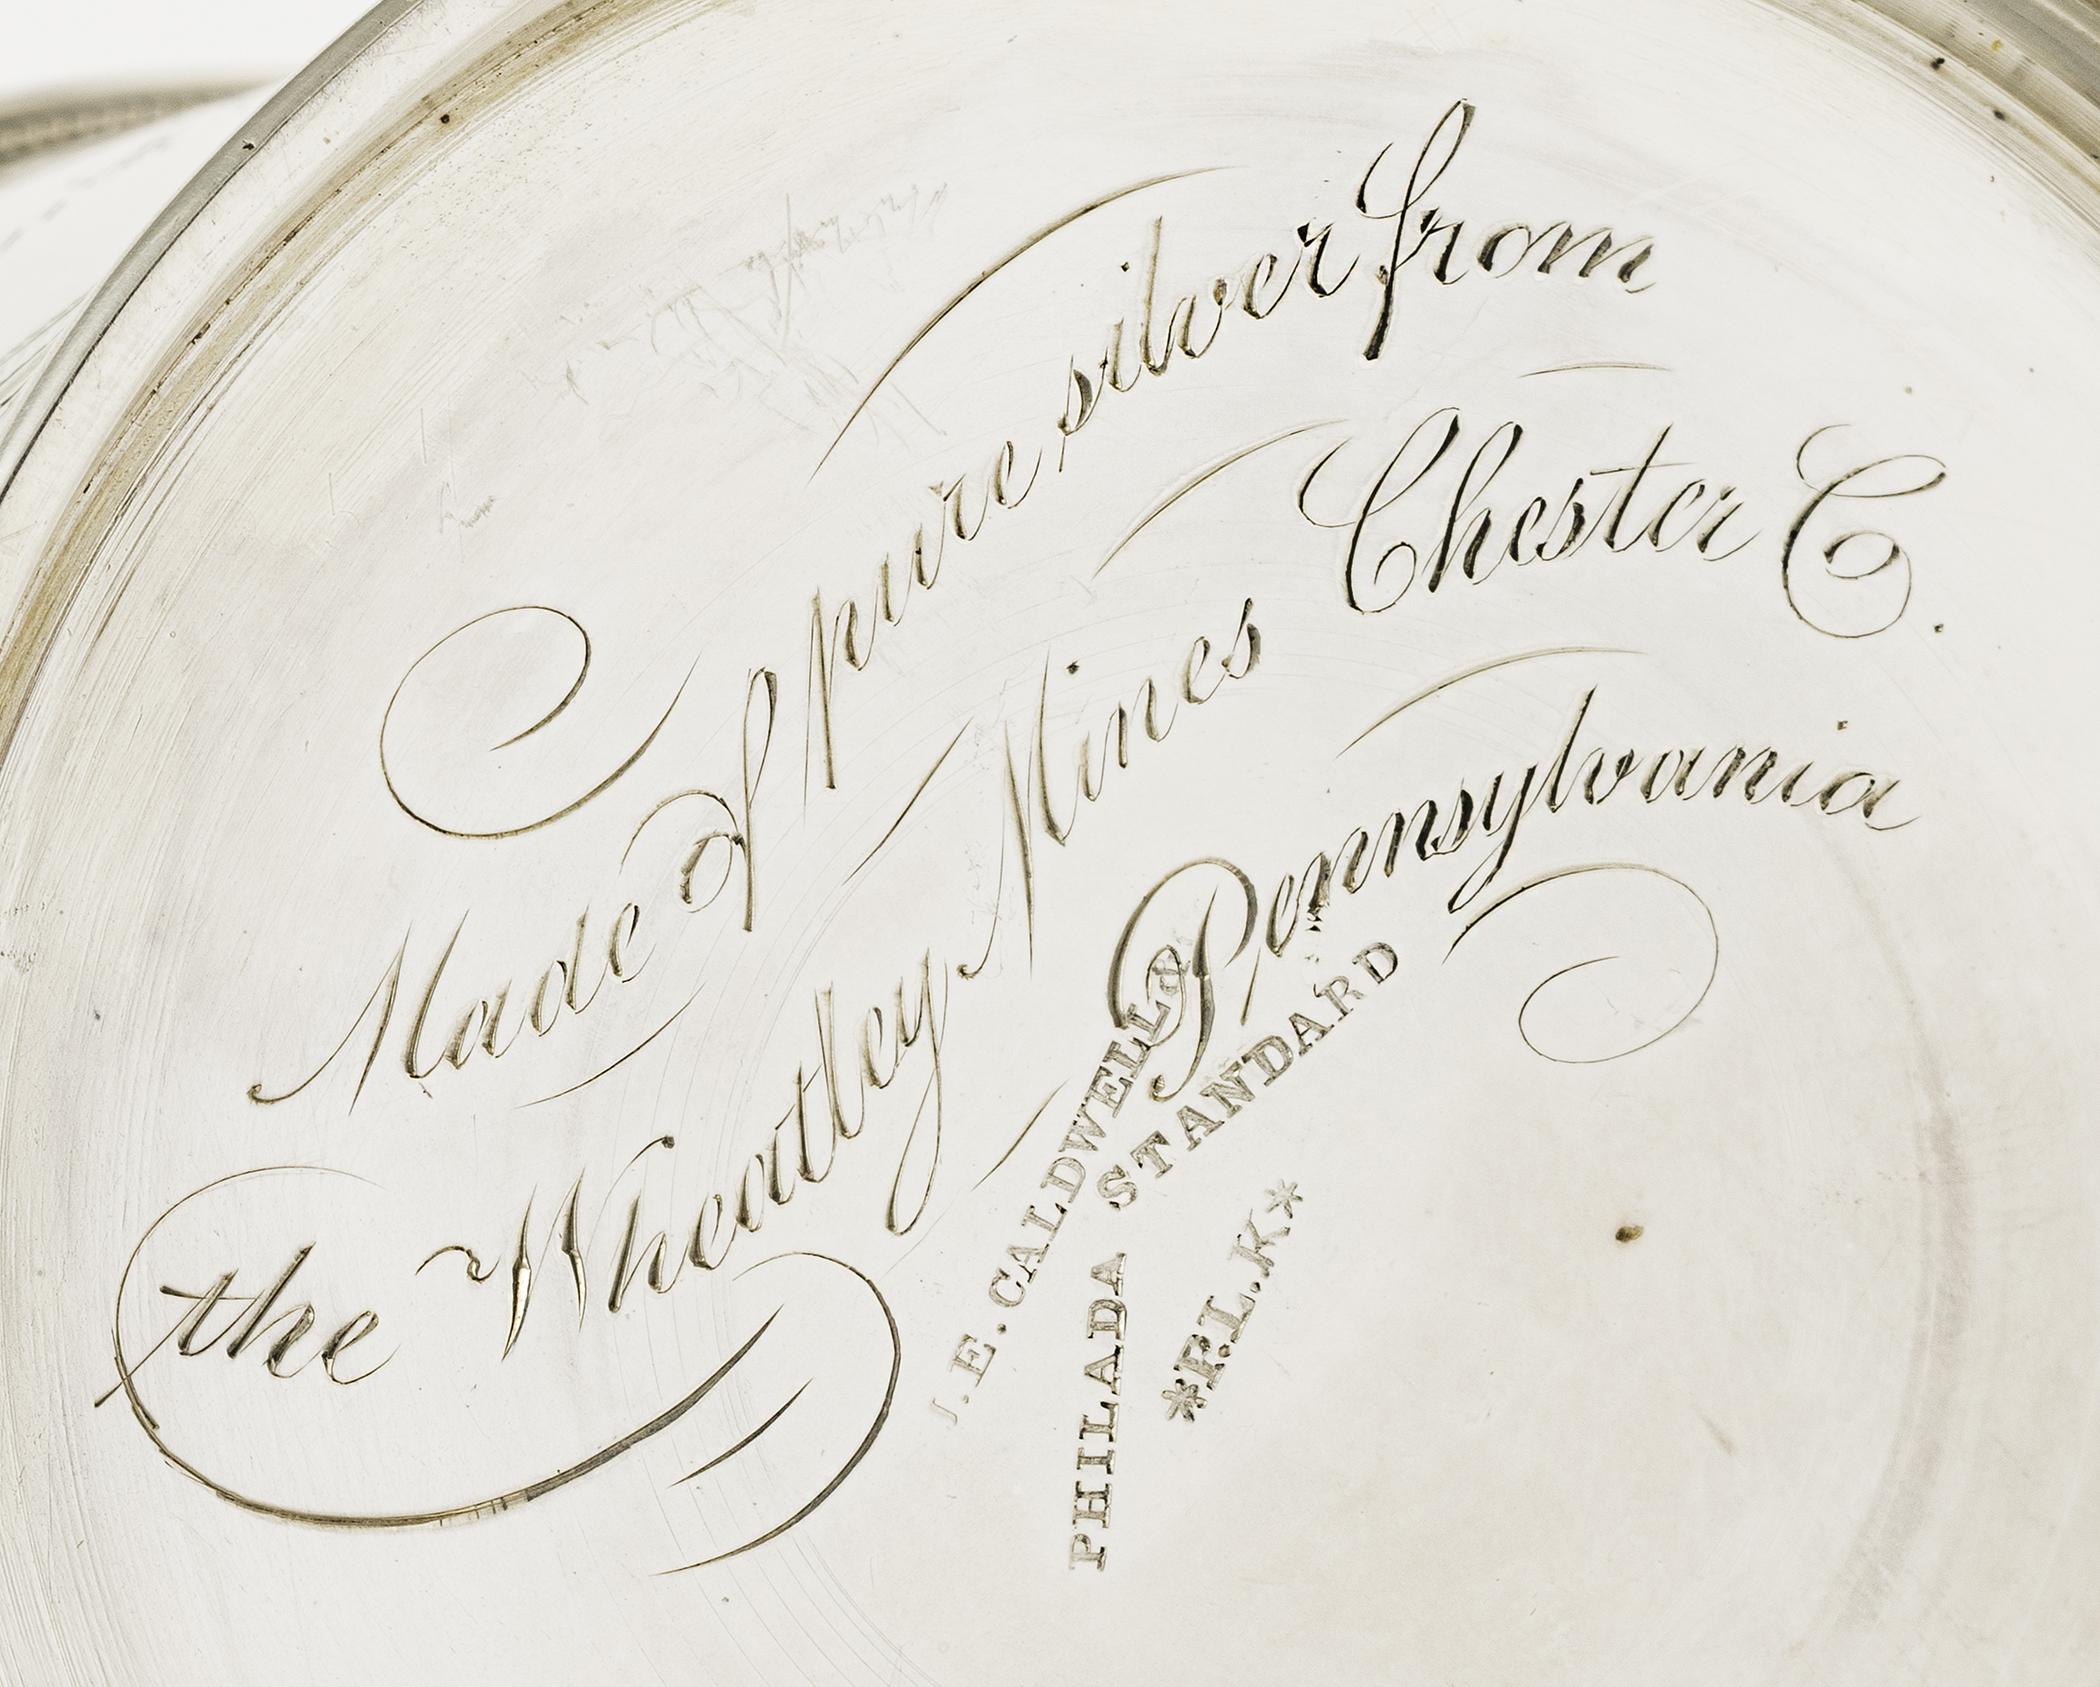 Made of pure silver from
the Wheatley Mines Chester C.
Pennsylvania
J.E. CALDWELL &
PHILADA STANDARD
*P.L.K*